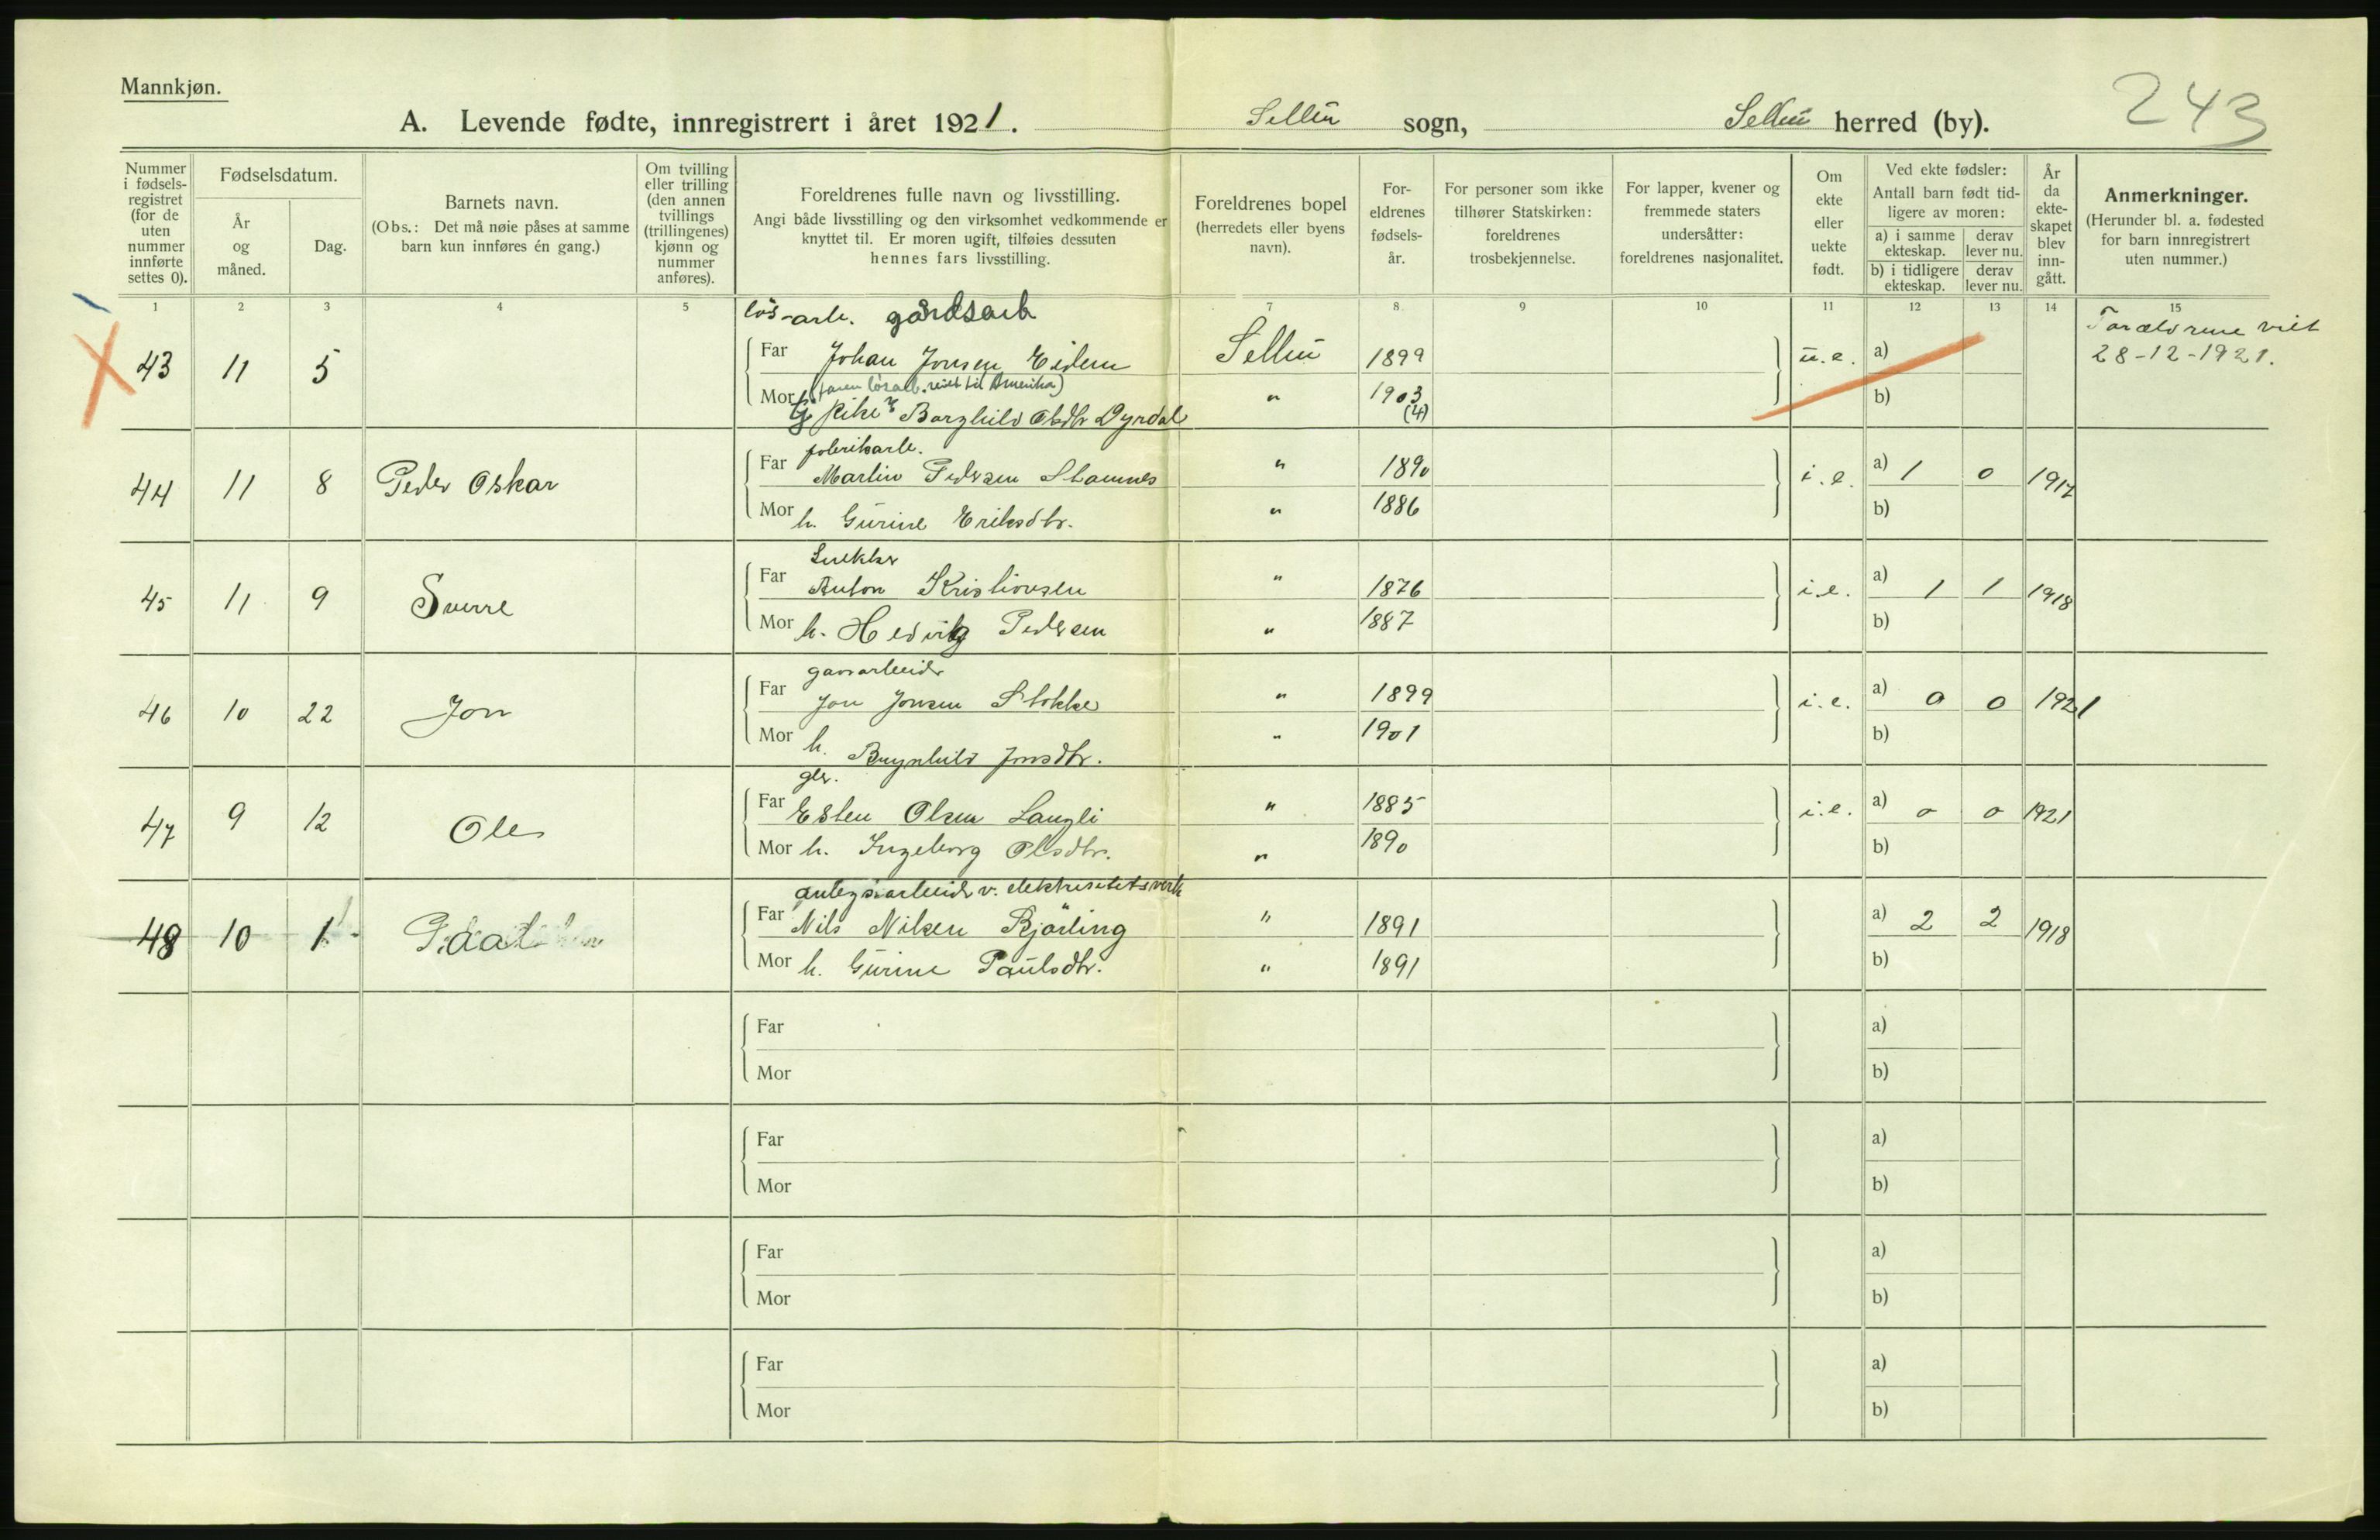 Mannkjøn.
243
A. Levende fødte, innregistrert i året 1921. Selbu sogn, Selbu herred (by).
Nummer i fødsels-registret (for de uten nummer innførte settes 0).
Fødselsdatum.
År og måned.
Dag.
Barnets navn.
(Obs.: Det må nøie påses at samme barn kun innføres én gang.)
Om tvilling eller trilling (den annen tvillings (trillingenes) kjønn og nummer anføres).
Foreldrenes fulle navn og livsstilling.
Angi både livsstilling og den virksomhet vedkommende er knyttet til. Er moren ugift, tilføies dessuten hennes fars livsstilling.
Foreldrenes bopel (herredets eller byens navn).
For-eldrenes fødsels-år.
For personer som ikke tilhører Statskirken: foreldrenes trosbekjennelse.
For lapper, kvener og fremmede staters undersåtter: foreldrenes nasjonalitet.
Om ekte eller uekte født.
Ved ekte fødsler:
Antall barn født tid-ligere av moren:
a) i samme ekteskap. derav lever nu.
b) i tidligere ekteskap. derav lever nu.
År da ekte-skapet blev inn-gått.
Anmerkninger.
(Herunder bl. a. fødested for barn innregistrert uten nummer.)
1 2 3 4 5 7 8 9 10 11 12 13 14 15
løs-arb. gårdsarb
43 11 5 Far Johan Jonsen Eidem Selbu 1899 u.e. a) Forældrene viet 28-12-1921.
(faren løsarb. reist til Amerika)
Mor pike Borghild Olsdtr Dyrdal " 1903 (4) b)
fabrikarb.
44 11 8 Peder Oskar Far Martin Pedersen Stamnes " 1890 i.e. a) 1 0 1917
Mor h. Gurine Eriksdtr. " 1886 b)
Snekker
45 11 9 Sverre Far Anton Kristiansen " 1876 i.e. a) 1 1 1918
Mor h. Hedvig Pedersen " 1887 b)
46 10 22 Jon Far Jon Jonsen Stokke " 1899 i.e. a) 0 0 1921
Mor h. Brynhild Jonsdtr. " 1901 b)
47 9 12 Ole Far Esten Olsen Langli " 1885 i.e. a) 0 0 1921
Mor h. Ingeborg Olsdtr. " 1890 b)
anlegsarbeider v. elektrisitetsverk
48 10 1 Far Nils Nilsen Bjørling " 1891 a) 2 2 1918
Mor h. Gurine Paulsdtr. " 1891 b)
Far a)
Mor b)
Far a)
Mor b)
Far a)
Mor b)
Far a)
Mor b)